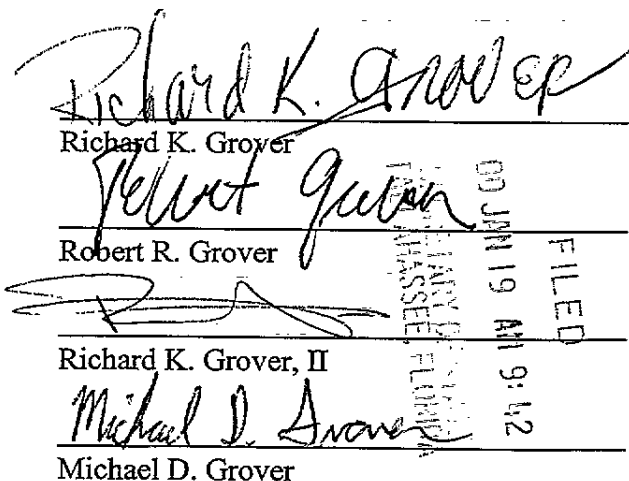 Richard K. Grover
Richard K. Grover
Robert Grover
Robert R. Grover
Richard K. Grover, II
Michael D. Grover
Michael D. Grover
FILED
00 JAN 19 AM 9:42
SECRETARY OF STATE
TALLAHASSEE, FLORIDA